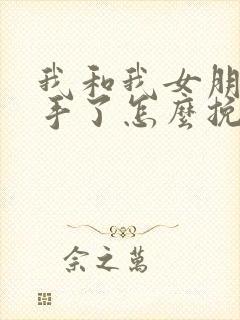 我和我女朋
手了怎麼挽
余之萬